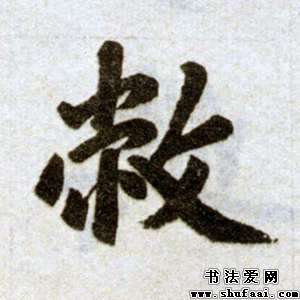 敝
书法爱网
www.shufaai.com